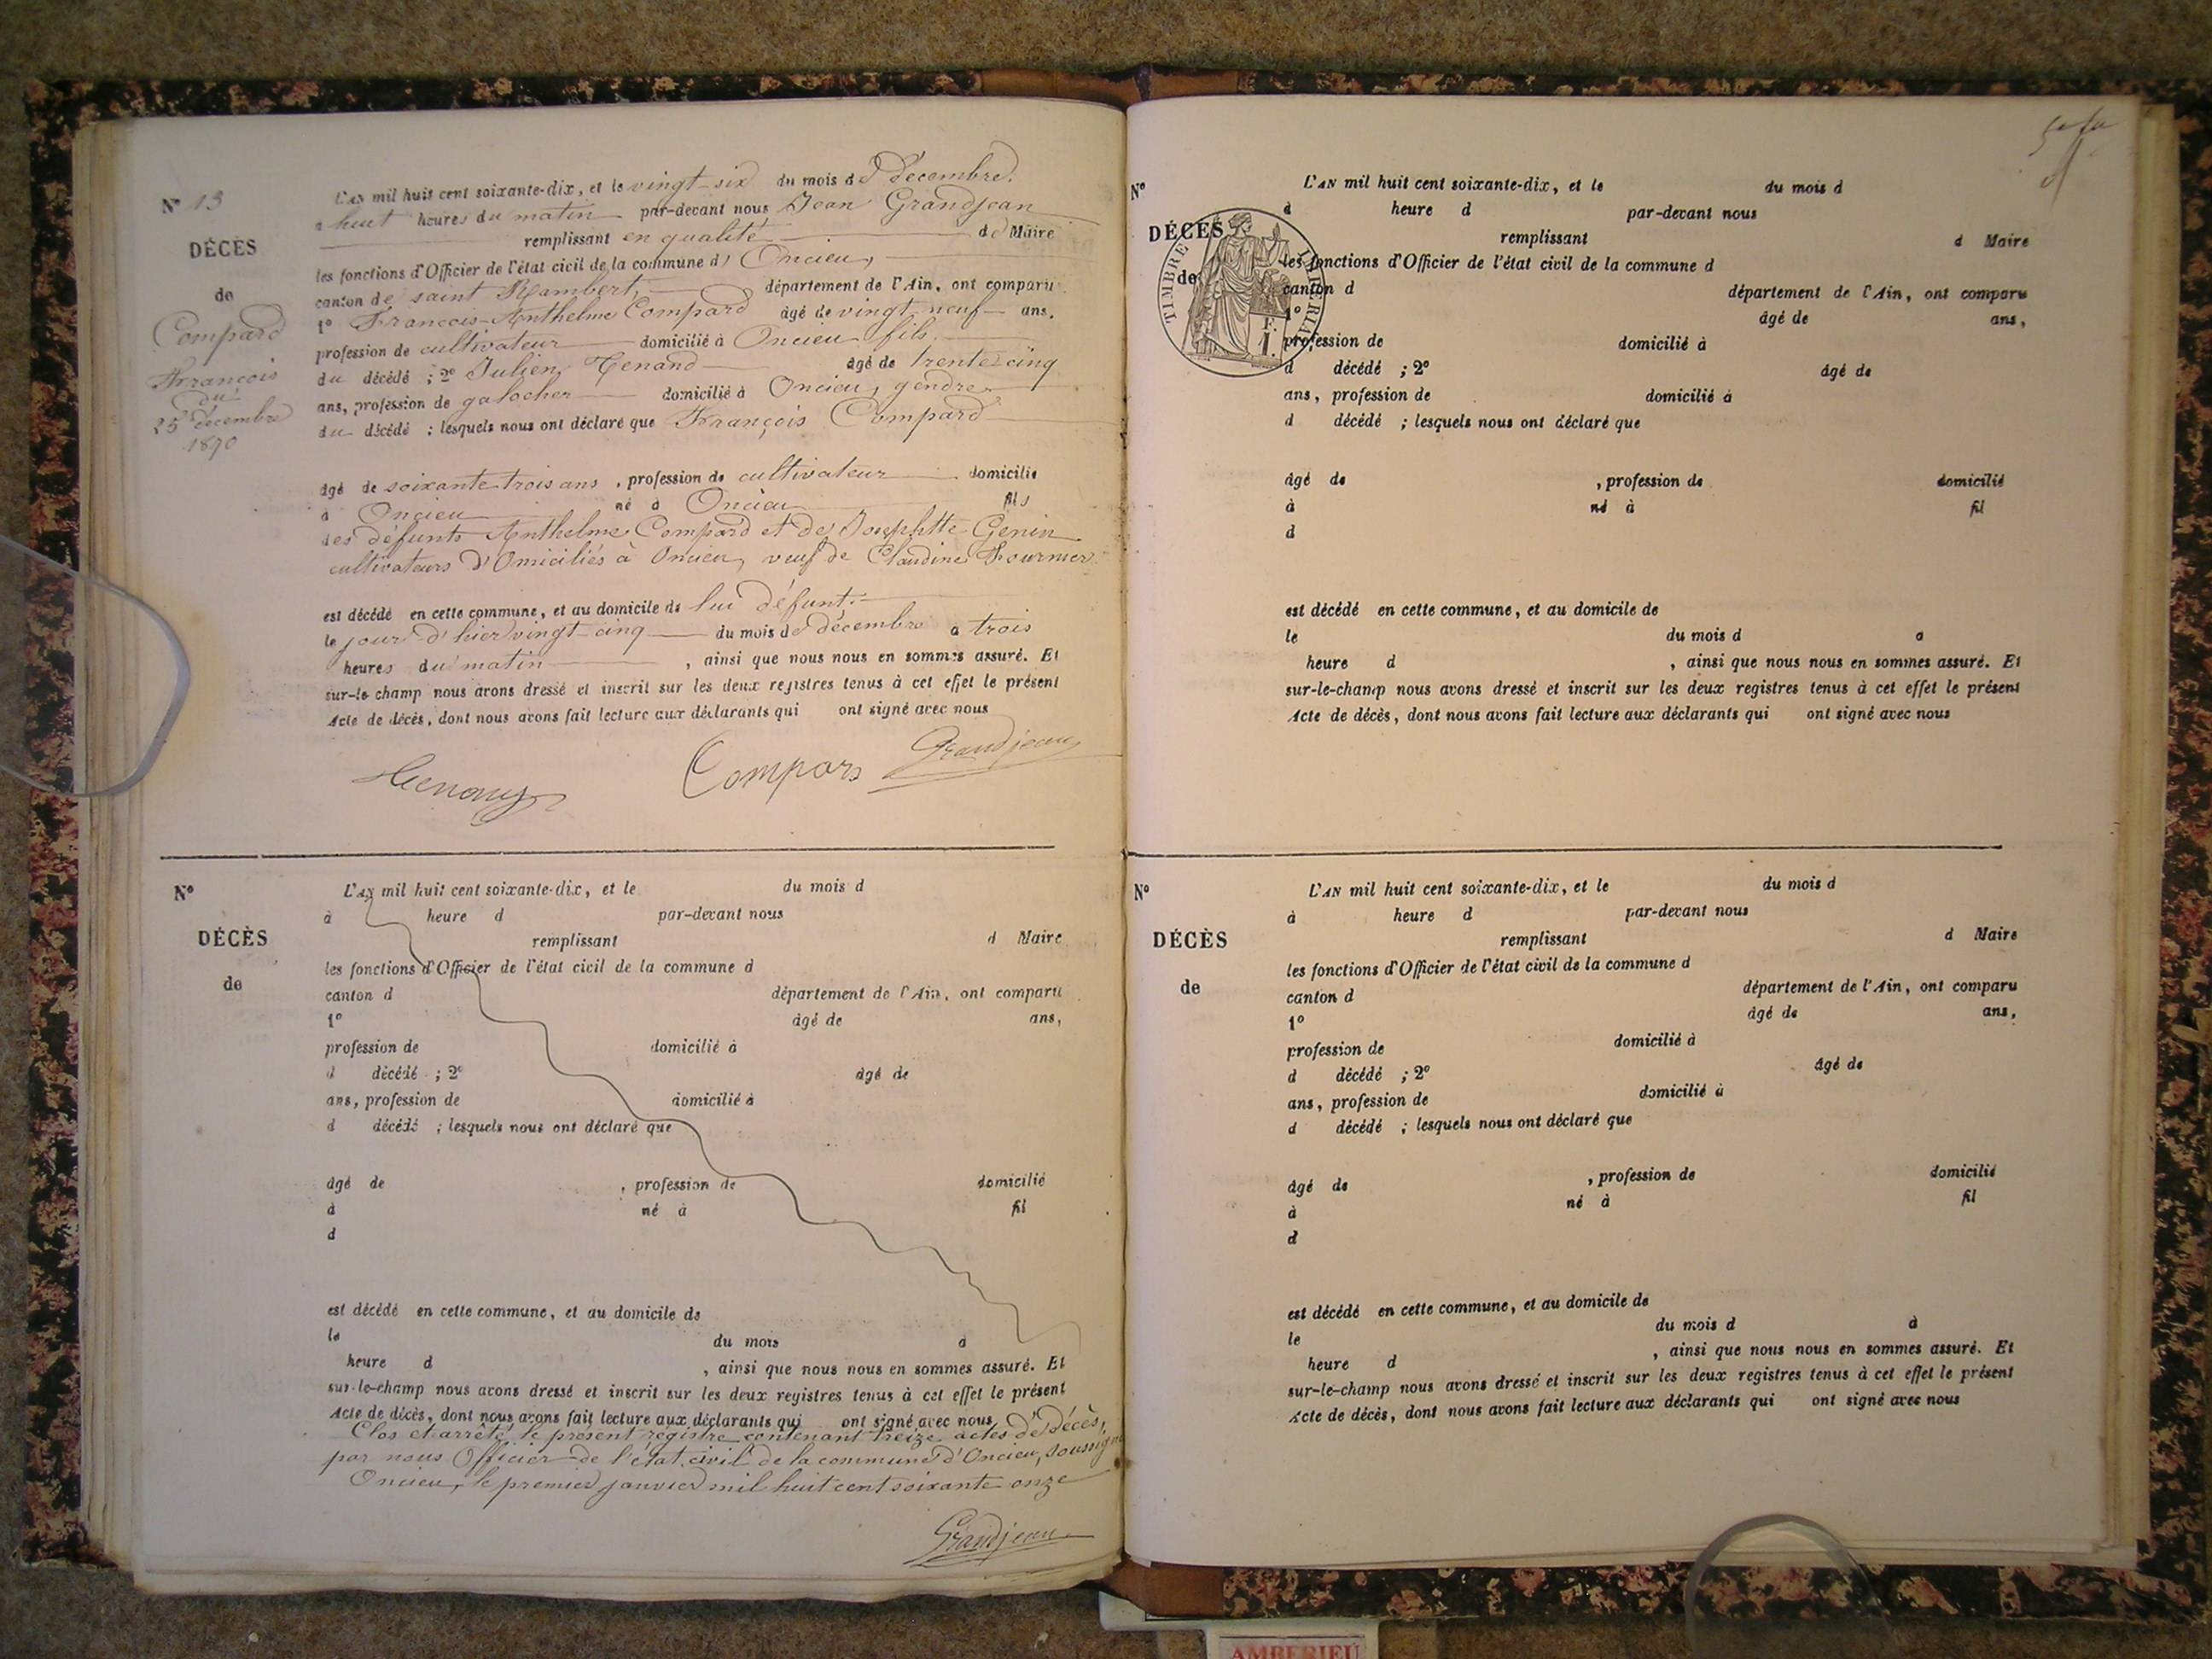 N° 13
DÉCÈS
de
Compard
François
du
25 décembre
1870
L'AN mil huit cent soixante-dix, et le vingt-six du mois de décembre.
à huit heures du matin par-devant nous Jean Grandjean
remplissant en qualité de Maire
les fonctions d'Officier de l'état civil de la commune d' Oncieu,
canton de saint Rambert, département de l'Ain, ont comparu
1° François-Anthelme Compard âgé de vingt-neuf ans.
profession de cultivateur domicilié à Oncieu fils
du décédé ; 2° Julien Tenand âgé de trente cinq
ans, profession de galocher domicilié à Oncieu, gendre
du décédé ; lesquels nous ont déclaré que François Compard
âgé de soixante-trois ans , profession de cultivateur domicilié
à Oncieu né à Oncieu fils
des défunts Anthelme Compard et de Josephtte Genin
cultivateurs d'Omiciliés à Oncieu, veuf de Claudine Fournier
est décédé en cette commune, et au domicile de lui défunt.
le jour d'hier vingt-cinq du mois de décembre à trois
heures du matin , ainsi que nous nous en sommes assuré. Et
sur-le-champ nous avons dressé et inscrit sur les deux registres tenus à cet effet le présent
Acte de décès, dont nous avons fait lecture aux déclarants qui ont signé avec nous
Compars Grandjean
N°
DÉCÈS
de
L'AN mil huit cent soixante-dix, et le du mois d
à heure d par-devant nous
remplissant d Maire
les fonctions d'Officier de l'état civil de la commune d
canton d département de l'Ain, ont comparu
1° âgé de ans,
profession de domicilié à
d décédé ; 2° âgé de
ans, profession de domicilié à
d décédé ; lesquels nous ont déclaré que
âgé de , profession de domicilié
à né à fil
d
est décédé en cette commune, et au domicile de
le du mois à
heure d , ainsi que nous nous en sommes assuré. Et
sur-le-champ nous avons dressé et inscrit sur les deux registres tenus à cet effet le présent
Acte de décès, dont nous avons fait lecture aux déclarants qui ont signé avec nous
Clos et arrêté le présent registre contenant treize actes de décès,
par nous Officier de l'état civil de la commune d'Oncieu, soussigné
Oncieu, le premier janvier mil huit cent soixante onze
Grandjean
N°
DÉCÈS
de
TIMBRE IMPÉRIAL
1 F.
L'AN mil huit cent soixante-dix, et le du mois d
à heure d par-devant nous
remplissant d Maire
les fonctions d'Officier de l'état civil de la commune d
canton d département de l'Ain, ont comparu
1° âgé de ans,
profession de domicilié à
d décédé ; 2° âgé de
ans, profession de domicilié à
d décédé ; lesquels nous ont déclaré que
âgé de , profession de domicilié
à né à fil
d
est décédé en cette commune, et au domicile de
le du mois d à
heure d , ainsi que nous nous en sommes assuré. Et
sur-le-champ nous avons dressé et inscrit sur les deux registres tenus à cet effet le présent
Acte de décès, dont nous avons fait lecture aux déclarants qui ont signé avec nous
N°
DÉCÈS
de
L'AN mil huit cent soixante-dix, et le du mois d
à heure d par-devant nous
remplissant d Maire
les fonctions d'Officier de l'état civil de la commune d
canton d département de l'Ain, ont comparu
1° âgé de ans,
profession de domicilié à
d décédé ; 2° âgé de
ans, profession de domicilié à
d décédé ; lesquels nous ont déclaré que
âgé de , profession de domicilié
à né à fil
d
est décédé en cette commune, et au domicile de
le du mois d à
heure d , ainsi que nous nous en sommes assuré. Et
sur-le-champ nous avons dressé et inscrit sur les deux registres tenus à cet effet le présent
Acte de décès, dont nous avons fait lecture aux déclarants qui ont signé avec nous
AMBERIEU